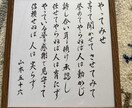 やってみせ
言って聞かせて させてみせ
誉めてやらねば 人は動かじ
話し合い 耳を傾け 承認し
任せてやらねば 人は育たず
やっている 姿を感謝で見守って
信頼せねば 人は実らず
山本五十六